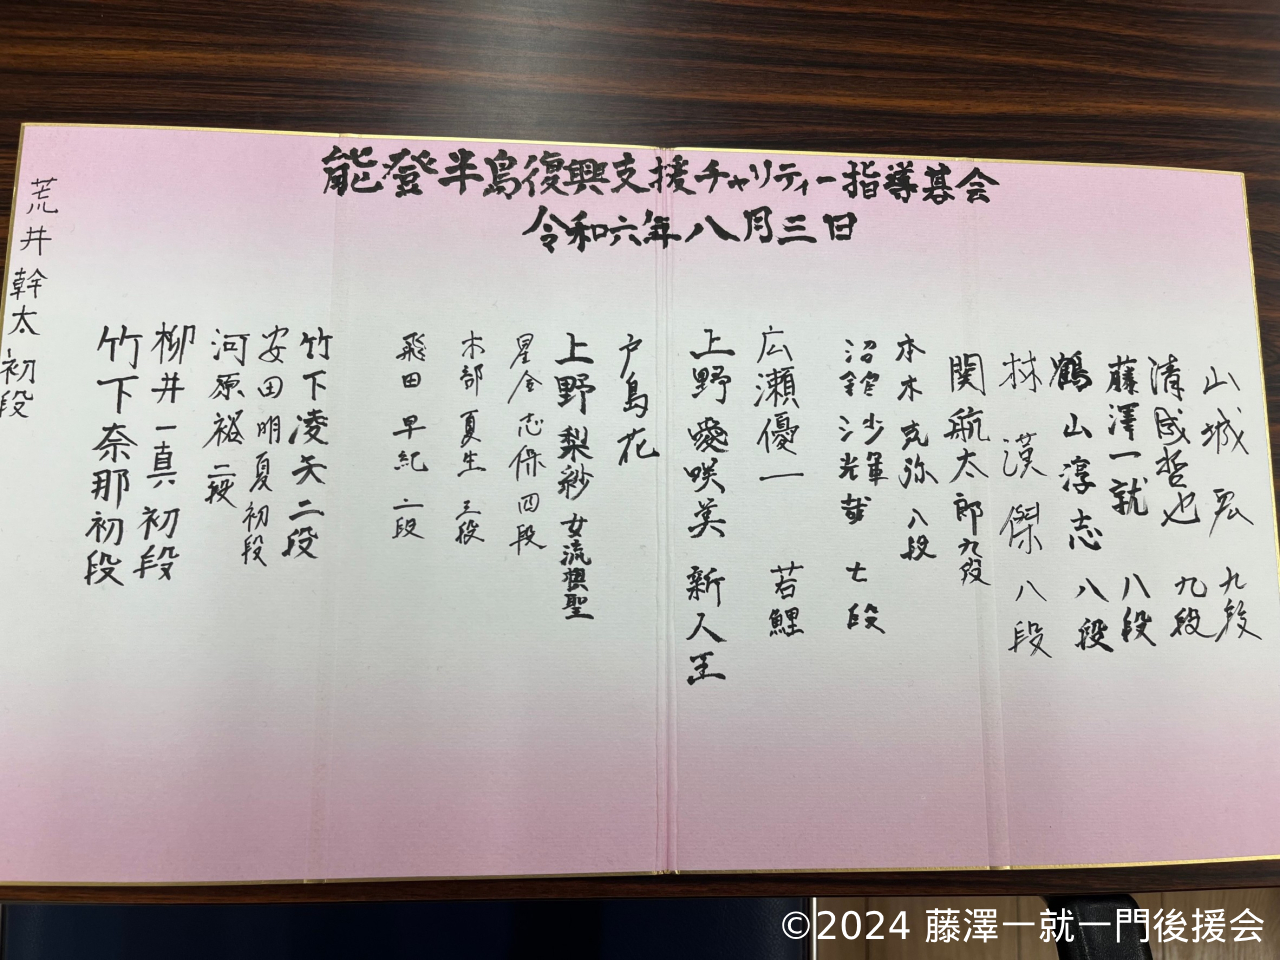 能登半島復興支援チャリティー指導碁会
令和六年八月三日
山城宏 九段
清成哲也 九段
藤澤一就 八段
鶴山淳志 八段
林漢傑 八段
関航太郎 九段
本木克弥 八段
沼舘沙輝哉 七段
広瀬優一 若鯉
上野愛咲美 新人王
戸島花
上野梨紗 女流棋聖
星合志保 四段
木部夏生 三段
飛田早紀 二段
竹下凌矢 二段
安田明夏 初段
河原裕 二段
柳井一真 初段
竹下奈那 初段
荒井幹太 初段
©2024 藤澤一就一門後援会